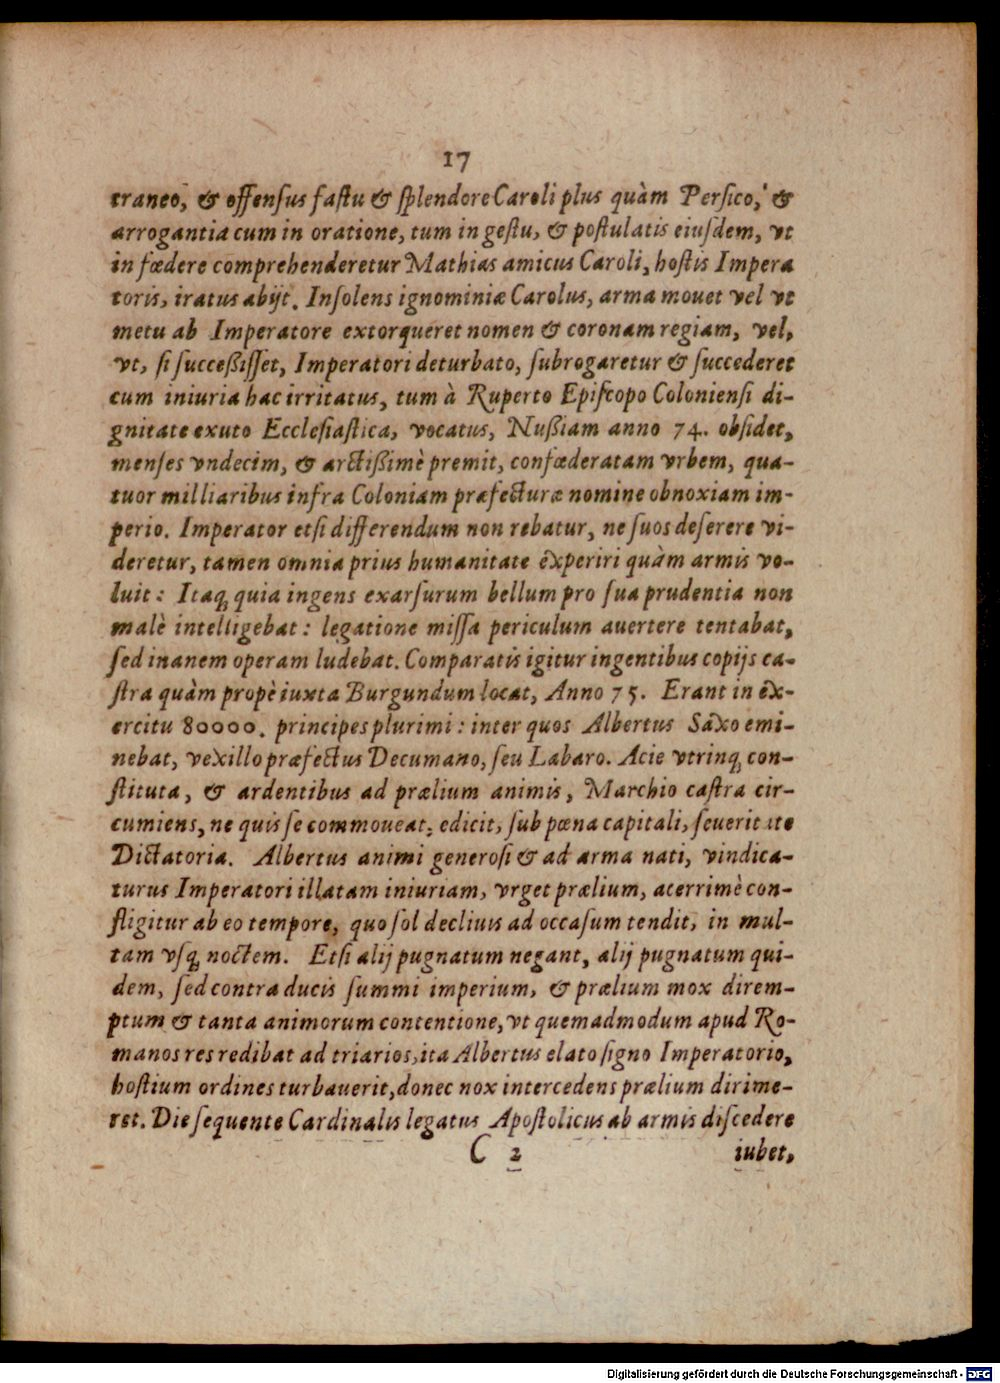 17
traneo, & offensus fastu & splendore Caroli plus quàm Persico, &
arrogantia cum in oratione, tum in gestu, & postulatis eiusdem, vt
in fœdere comprehenderetur Mathias amicus Caroli, hostis Impera
toris, iratus abijt. Insolens ignominiæ Carolus, arma mouet vel vt
metu ab Imperatore extorqueret nomen & coronam regiam, vel,
vt, si succeßisset, Imperatori deturbato, subrogaretur & succederet
cum iniuria hac irritatus, tum à Ruperto Episcopo Coloniensi di-
gnitate exuto Ecclesiastica, vocatus, Nußiam anno 74. obsidet,
menses vndecim, & arctißimè premit, confœderatam vrbem, qua-
tuor milliaribus infra Coloniam præfecturæ nomine obnoxiam im-
perio. Imperator etsi differendum non rebatur, ne suos deserere vi-
deretur, tamen omnia prius humanitate experiri quàm armis vo-
luit: Itaq; quia ingens exarsurum bellum pro sua prudentia non
malè intelligebat: legatione missa periculum auertere tentabat,
sed inanem operam ludebat. Comparatis igitur ingentibus copijs ca-
stra quàm propè iuxta Burgundum locat, Anno 75. Erant in ex-
ercitu 80000. principes plurimi: inter quos Albertus Saxo emi-
nebat, vexillo præfectus Decumano, seu Labaro. Acie vtrinq; con-
stituta, & ardentibus ad prælium animis, Marchio castra cir-
cumiens, ne quis se commoueat, edicit, sub pœna capitali, seueritate
Dictatoria. Albertus animi generosi & ad arma nati, vindica-
turus Imperatori illatam iniuriam, vrget prælium, acerrimè con-
fligitur ab eo tempore, quo sol decliuis ad occasum tendit, in mul-
tam vsq; noctem. Etsi alij pugnatum negant, alij pugnatum qui-
dem, sed contra ducis summi imperium, & prælium mox direm-
ptum & tanta animorum contentione, vt quemadmodum apud Ro-
manos res redibat ad triarios, ita Albertus elato signo Imperatorio,
hostium ordines turbauerit, donec nox intercedens prælium dirime-
ret. Die sequente Cardinalis legatus Apostolicus ab armis discedere
C 2 iubet,
Digitalisierung gefördert durch die Deutsche Forschungsgemeinschaft - DFG